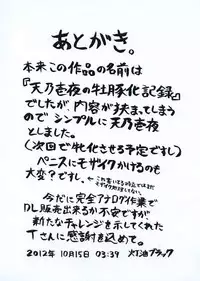 あとがき。
本来この作品の名前は
『天乃壱夜の牡豚化記録』
でしたが、内容が狭まってしまう
のでシンプルに天乃壱夜
としました。
(次回で牝化させる予定ですし)
ペニスにモザイクかけるのも
大変?です。
←これ書いてる時点ではまだ
モザイクかけてない。
今だに完全アナログ作業で
DL販売出来るか不安ですが
新たなチャレンジを示してくれた
Tさんに感謝を込めて。
2012年 10月15日 03:39
ブラック